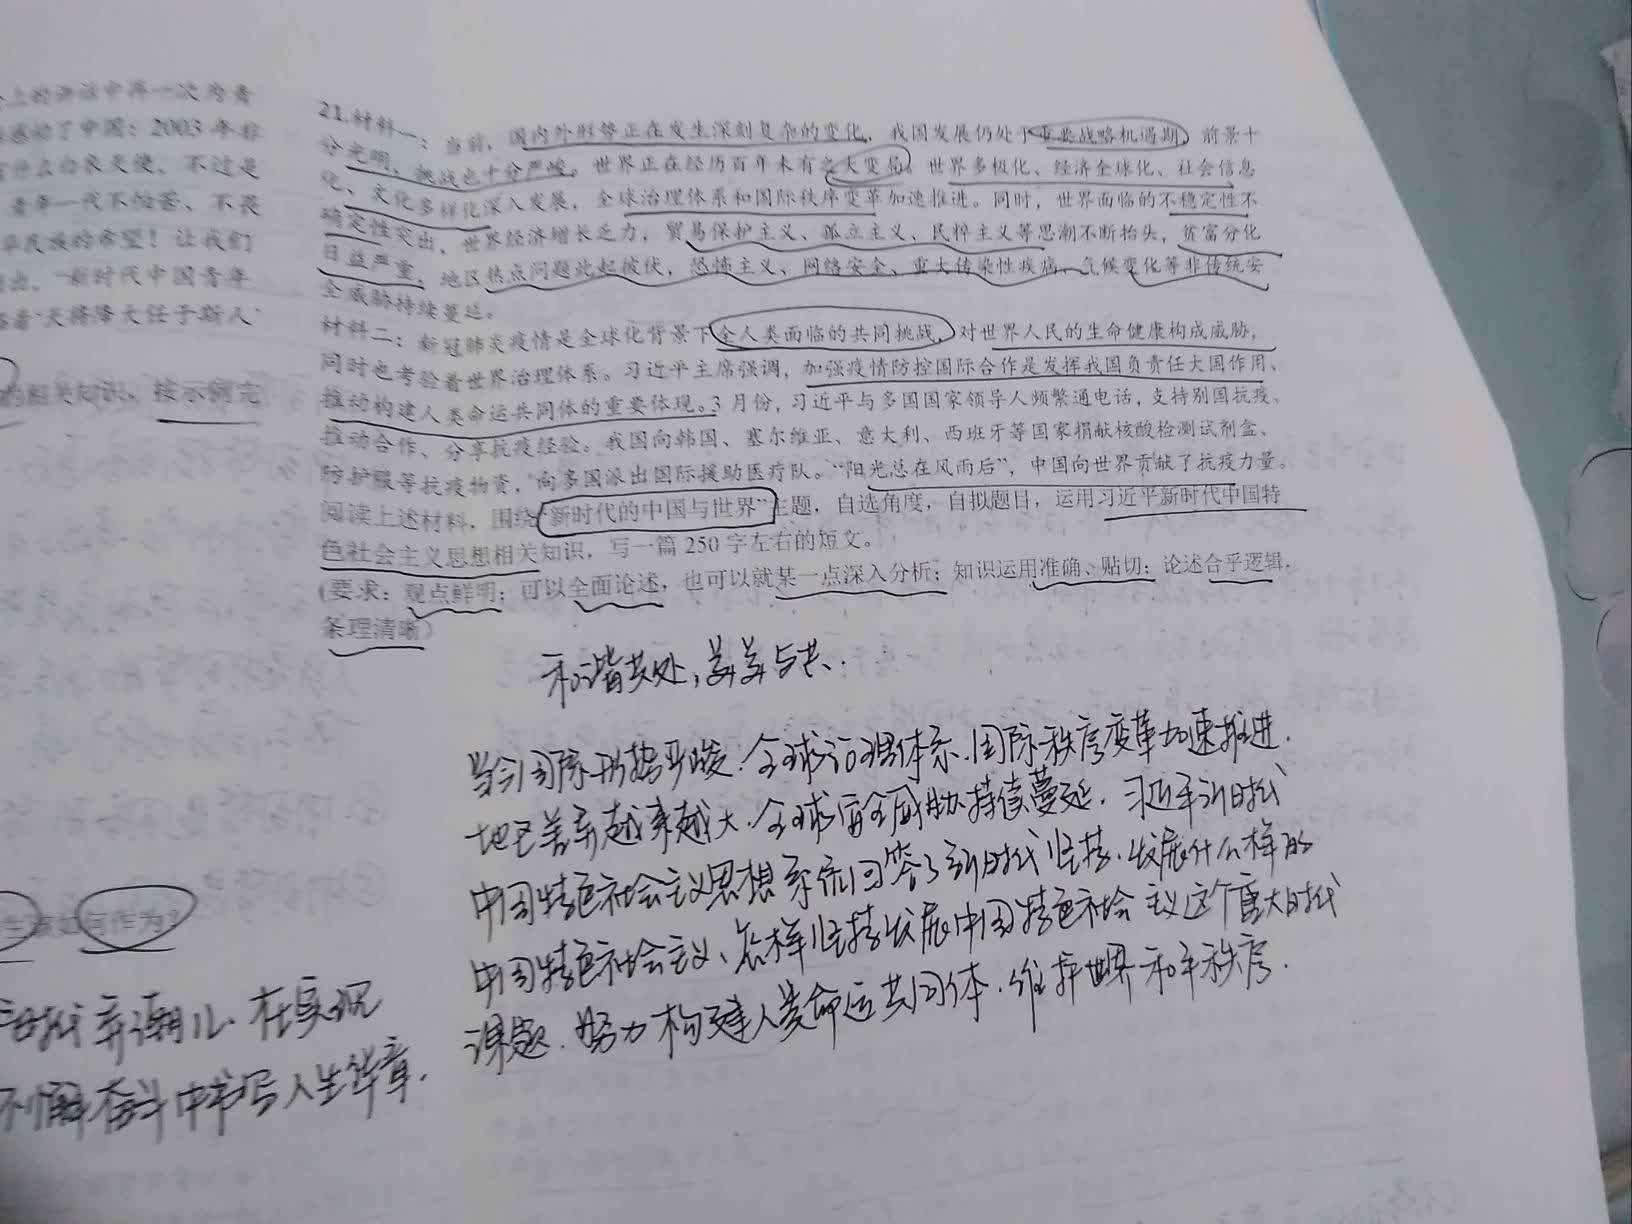 会上的讲话中再一次为青
感动了中国：2003年非
有什么白衣天使，不过是
青年一代不怕苦、不畏
华民族的希望！让我们
出，“新时代中国青年
着‘天将降大任于斯人’
的相关知识，按示例完
生该如何作为？
时代弄潮儿、在实现
不懈奋斗中书写人生华章.
21.材料一：当前，国内外形势正在发生深刻复杂的变化，我国发展仍处于重要战略机遇期，前景十
分光明，挑战也十分严峻。世界正在经历百年未有之大变局，世界多极化、经济全球化、社会信息
化、文化多样化深入发展，全球治理体系和国际秩序变革加速推进。同时，世界面临的不稳定性不
确定性突出，世界经济增长乏力，贸易保护主义、孤立主义、民粹主义等思潮不断抬头，贫富分化
日益严重，地区热点问题此起彼伏，恐怖主义、网络安全、重大传染性疾病、气候变化等非传统安
全威胁持续蔓延。
材料二：新冠肺炎疫情是全球化背景下全人类面临的共同挑战，对世界人民的生命健康构成威胁，
同时也考验着世界治理体系。习近平主席强调，加强疫情防控国际合作是发挥我国负责任大国作用、
推动构建人类命运共同体的重要体现。3月份，习近平与多国国家领导人频繁通电话，支持别国抗疫、
推动合作、分享抗疫经验。我国向韩国、塞尔维亚、意大利、西班牙等国家捐献核酸检测试剂盒、
防护服等抗疫物资，向多国派出国际援助医疗队。“阳光总在风雨后”，中国向世界贡献了抗疫力量。
阅读上述材料，围绕“新时代的中国与世界”主题，自选角度，自拟题目，运用习近平新时代中国特
色社会主义思想相关知识，写一篇250字左右的短文。
(要求：观点鲜明；可以全面论述，也可以就某一点深入分析；知识运用准确、贴切；论述合乎逻辑，
条理清晰)
和谐共处，美美与共.
当今国际形势严峻.全球治理体系.国际秩序变革加速推进.
地区差异越来越大.全球安全威胁持续蔓延.习近平新时代
中国特色社会主义思想系统回答了新时代坚持.发展什么样的
中国特色社会主义、怎样坚持发展中国特色社会主义这个重大时代
课题.努力构建人类命运共同体.维护世界和平秩序.